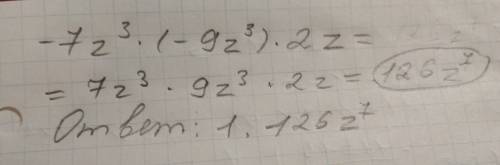 -7z³ · (-9z³) · 2z =
= 7z³ · 9z³ · 2z = 126z⁷
Ответ: 1. 126z⁷